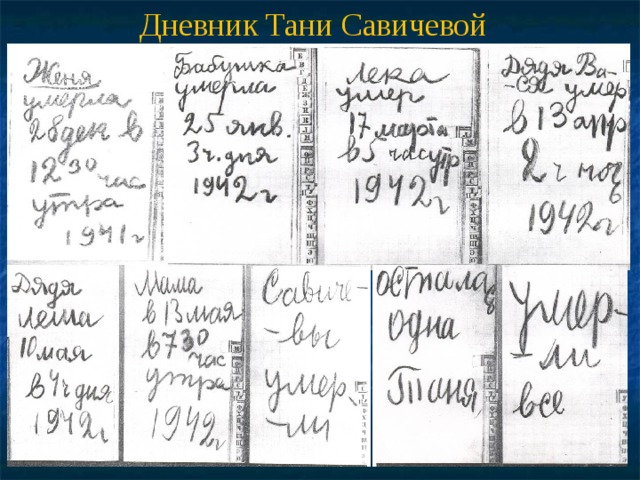 Дневник Тани Савичевой
Женя
умерла
28 дек в
12 30 час
утра
1941 г
Бабушка
умерла
25 янв.
3 ч. дня
1942 г
Лека
умер
17 марта
в 5 час утр
1942 г
Дядя Ва-
-ся умер
в 13 апр
2 ч ноч
1942 г
Дядя
Леша
10 мая
в 4 ч дня
1942 г
Мама
в 13 мая
в 7 30
час
утра
1942 г
Савиче-
-вы
умер
-ли
осталась
одна
Таня
умер-
-ли
все